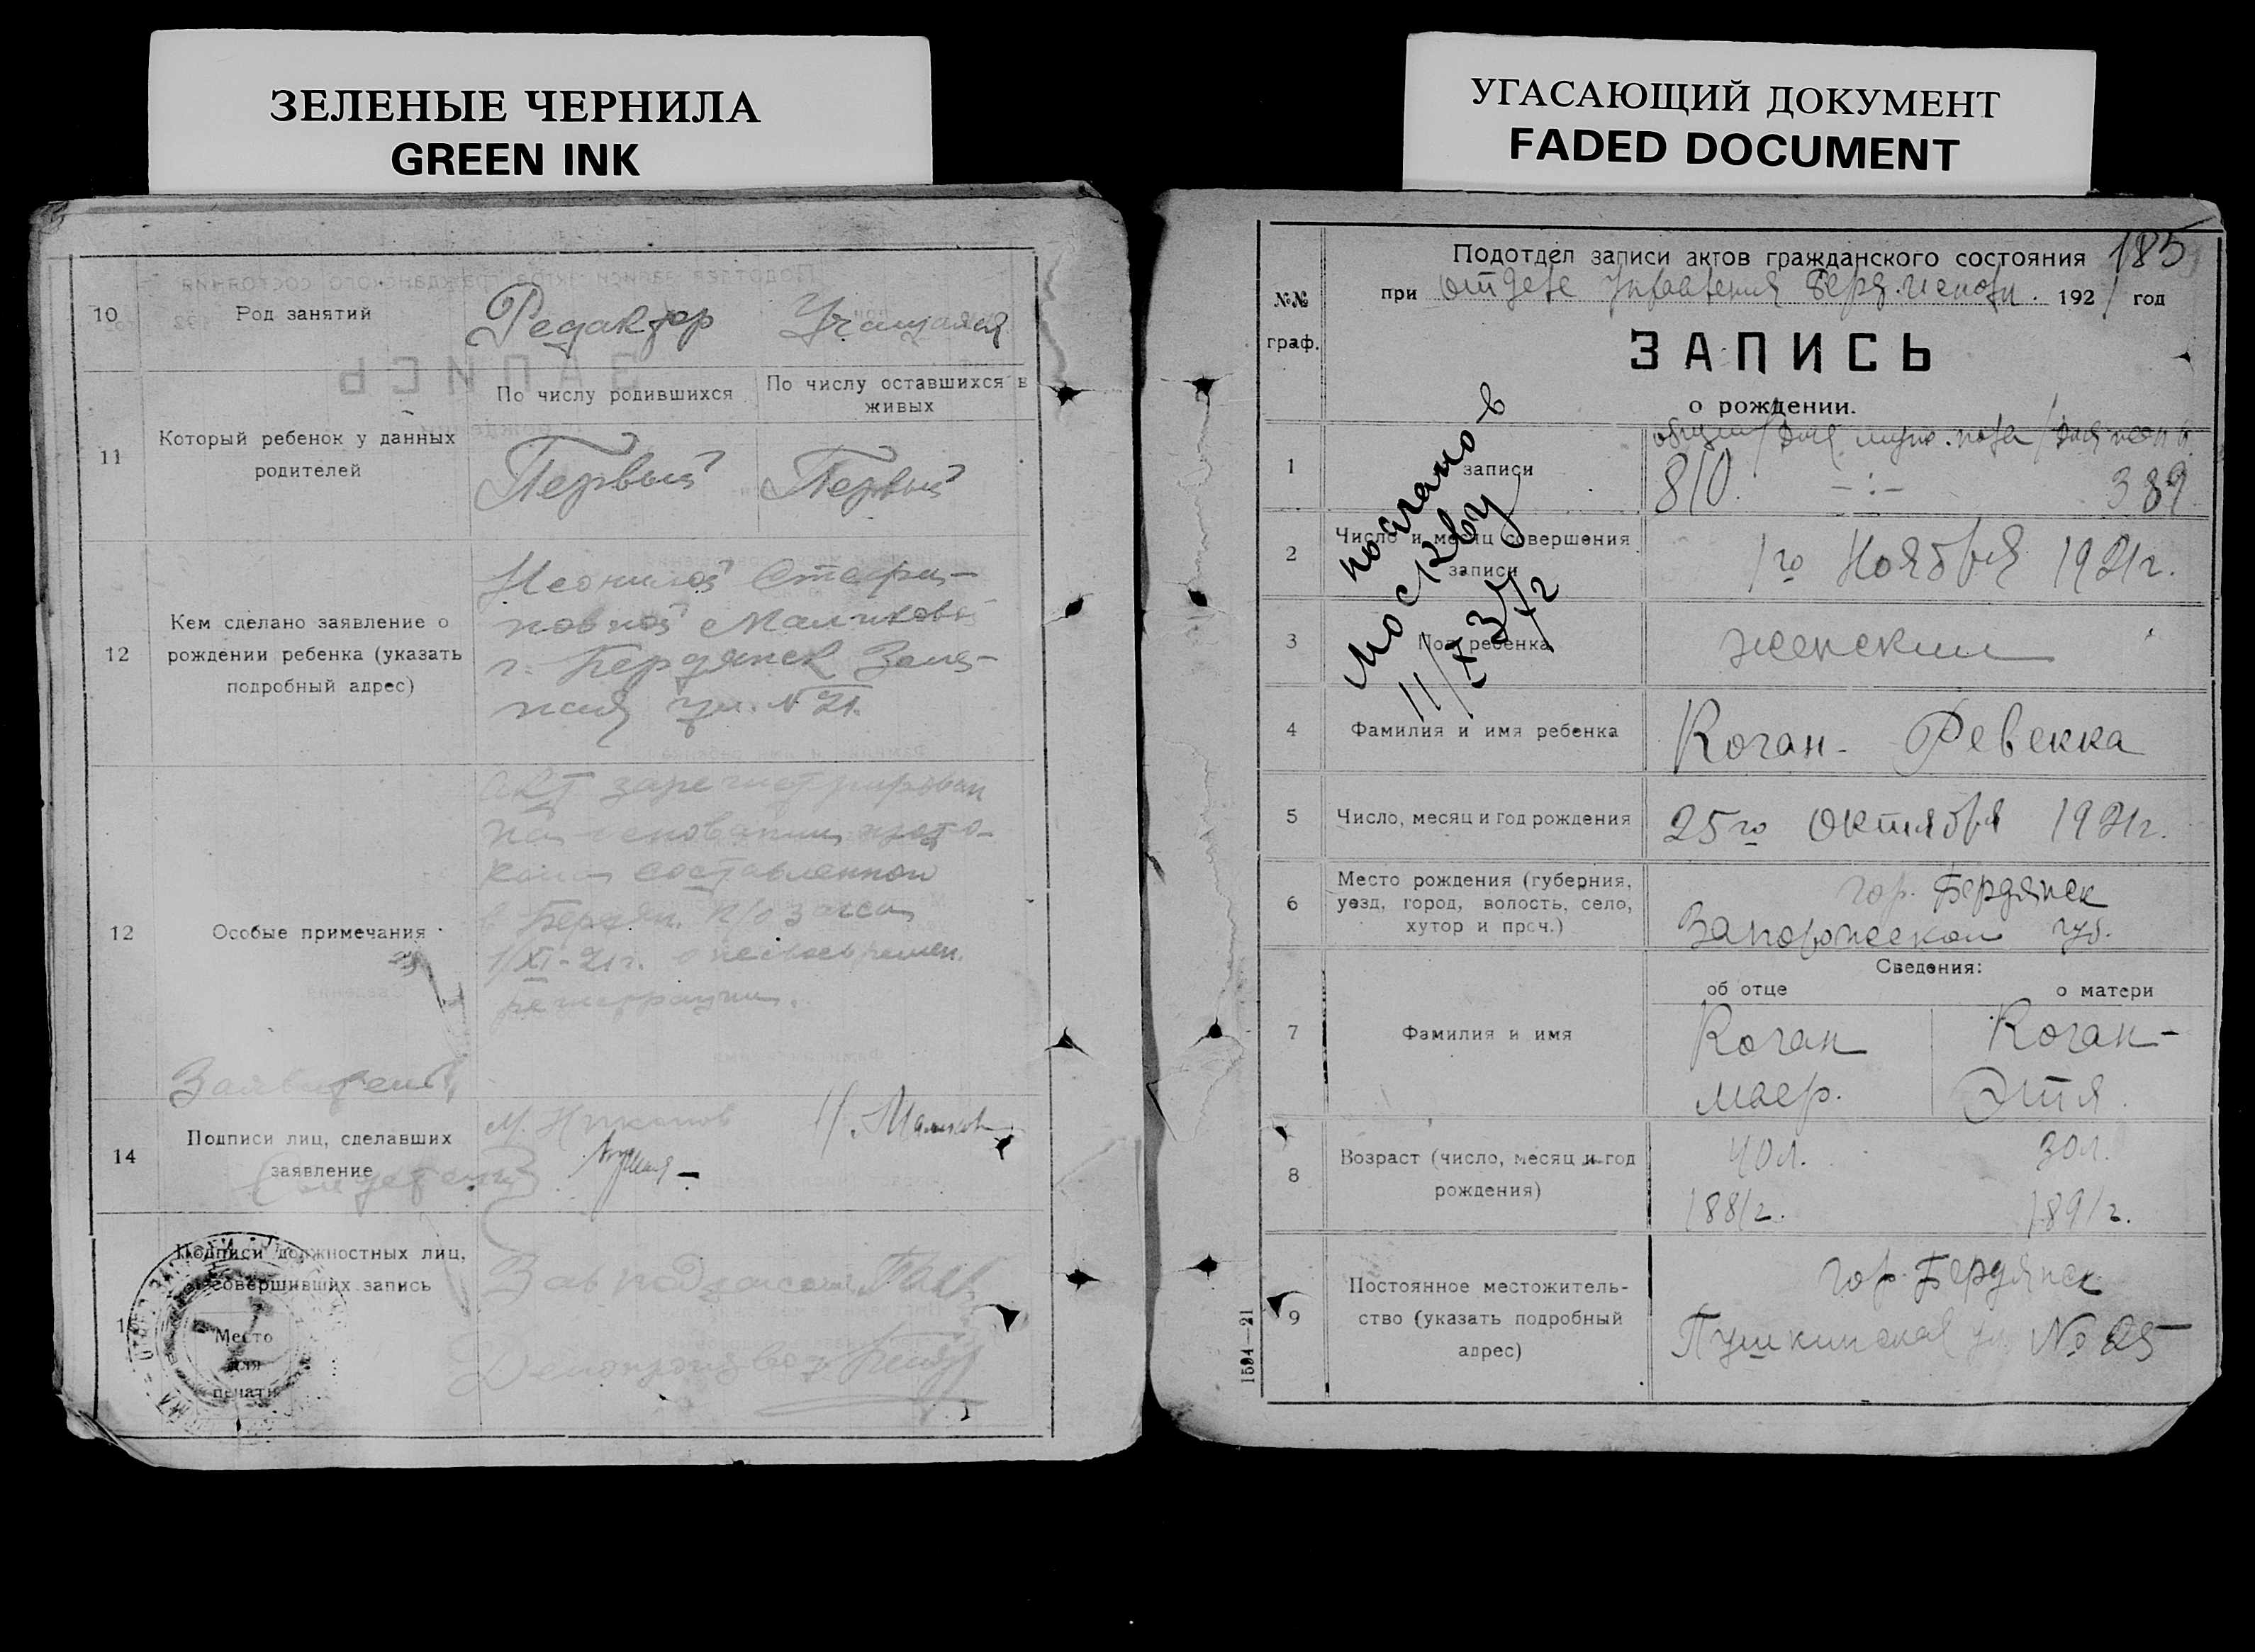 ЗЕЛЕНЫЕ ЧЕРНИЛА
GREEN INK
10
Род занятий
Редактор
Учащаяся
11
Который ребенок у данных
родителей
По числу родившихся
По числу оставшихся в
живых
Первый
Первый
12
Кем сделано заявление о
рождении ребенка (указать
подробный адрес)
г. Бердянск
ул. № 21.
12
Особые примечания
Акт зарегистрирован
на основании прото-
кола составленной
в Бердян. п/о загса
1/XI-21г. о несвоевремен.
регистрации.
14
Подписи лиц, сделавших
заявление
Подписи должностных лиц,
совершивших запись
Место
для
печати
УГАСАЮЩИЙ ДОКУМЕНТ
FADED DOCUMENT
185
№№
граф.
Подотдел записи актов гражданского состояния
при отделе Управления Бердянском. 1921 год
ЗАПИСЬ
о рождении.
1
записи
810. -:- 389
2
Число и месяц совершения
записи
1го Ноября 1921г.
3
Пол ребенка
женский
послано в
Москву
11/X 37г
4
Фамилия и имя ребенка
Коган- Ревекка
5
Число, месяц и год рождения
25го Октября 1921г.
6
Место рождения (губерния,
уезд, город, волость, село,
хутор и проч.)
гор. Бердянск
Запорожской губ.
Сведения:
об отце
о матери
7
Фамилия и имя
Коган
Маер.
Коган-
Этя.
8
Возраст (число, месяц и год
рождения)
40л.
1881г.
30л.
1891г.
9
Постоянное местожитель-
ство (указать подробный
адрес)
гор. Бердянск
Пушкинская ул. № 25
1594—21